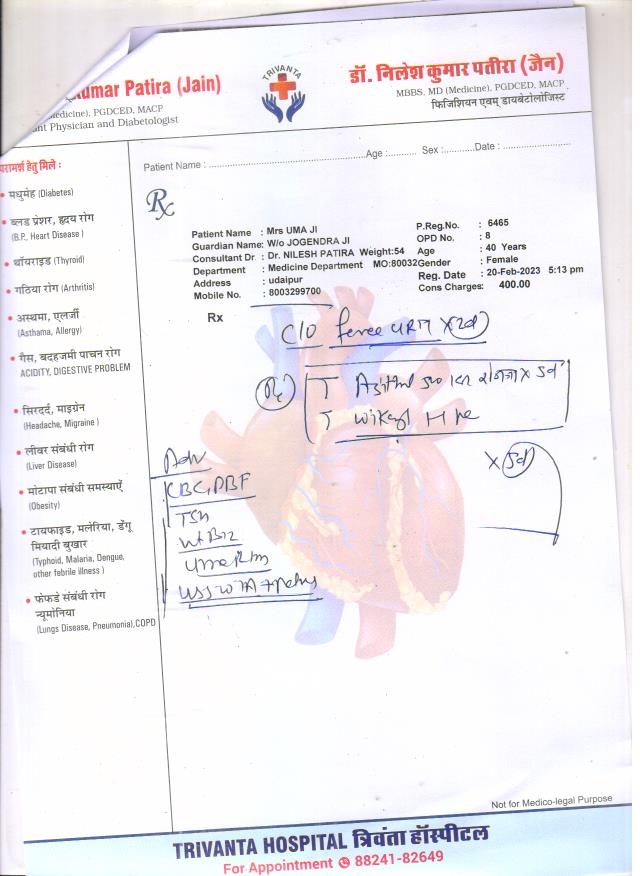 umar Patira (Jain)
edicine), PGDCED, MACP
nt Physician and Diabetologist
TRIVANTA
डॉ. निलेश कुमार पतीरा (जैन)
MBBS, MD (Medicine), PGDCED, MACP
फिजिशियन एवम् डायबेटोलॉजिस्ट
परामर्श हेतु मिले :
• मधुमेह (Diabetes)
• ब्लड प्रेशर, हृदय रोग
(B.P., Heart Disease )
• थॉयराइड (Thyroid)
• गठिया रोग (Arthritis)
• अस्थमा, एलर्जी
(Asthama, Allergy)
• गैस, बदहजमी पाचन रोग
ACIDITY, DIGESTIVE PROBLEM
• सिरदर्द, माइग्रेन
(Headache, Migraine )
• लीवर संबंधी रोग
(Liver Disease)
• मोटापा संबंधी समस्याऐं
(Obesity)
• टायफाइड, मलेरिया, डेंगू
मियादी बुखार
(Typhoid, Malaria, Dengue,
other febrile illness )
• फेफडे संबंधी रोग
न्यूमोनिया
(Lungs Disease, Pneumonia),COPD
Patient Name : Age : Sex : Date :
Rx
Patient Name : Mrs UMA JI P.Reg.No. : 6465
Guardian Name: W/o JOGENDRA JI OPD No. : 8
Consultant Dr : Dr. NILESH PATIRA Weight:54 Age : 40 Years
Department : Medicine Department MO:80032 Gender : Female
Address : udaipur Reg. Date : 20-Feb-2023 5:13 pm
Mobile No. : 8003299700 Cons Charges: 400.00
Rx
C/O
T
T
x 5d
Adv
CBC, PBF
TSH
Vit B12
Not for Medico-legal Purpose
TRIVANTA HOSPITAL त्रिवंता हॉस्पीटल
For Appointment 88241-82649